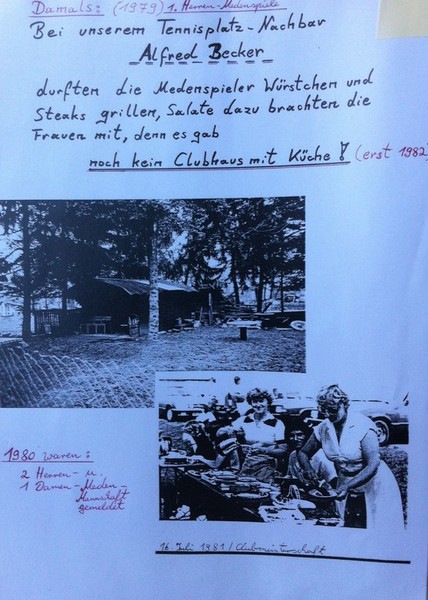 Damals: (1979) 1. Herren-Medenspiele
Bei unserem Tennisplatz-Nachbar
Alfred Becker
durften die Medenspieler Würstchen und
Steaks grillen, Salate dazu brachten die
Frauen mit, denn es gab
noch kein Clubhaus mit Küche! (erst 1982)
1980 waren:
2 Herren- u.
1 Damen-Meden-
Mannschaft
gemeldet
16. Juli 1981 / Clubmeisterschaft